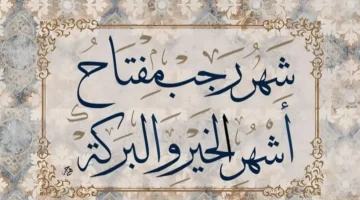 شَهرُ رَجب مِفتَاحُ
أَشهُرِ الخَيرِ وَالبَركَة